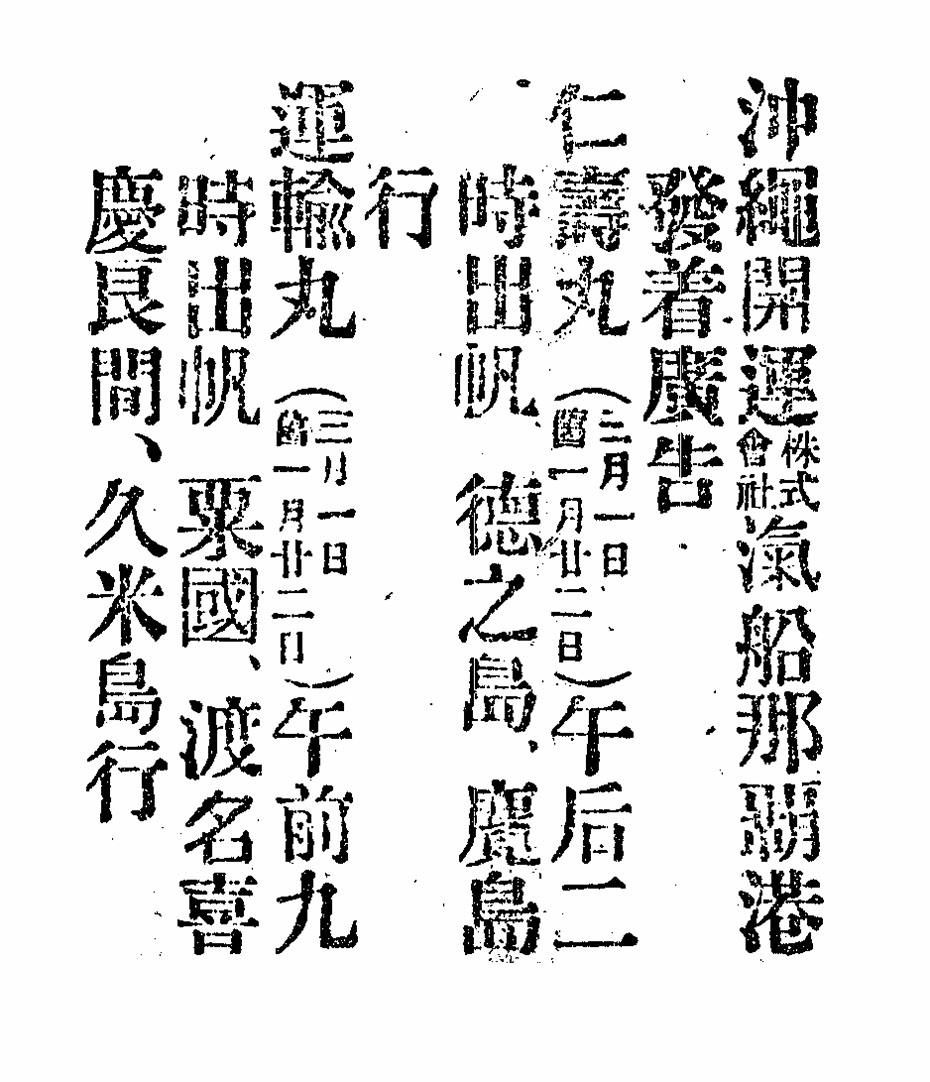 沖繩開運株式會社滊船那覇港
發着廣告
仁壽丸(三月一日舊一月廿二日)午后二
時出帆、德之島、鹿島
行
運輸丸(三月一日舊一月廿二日)午前九
時出帆 粟國、渡名喜
慶良間、久米島行